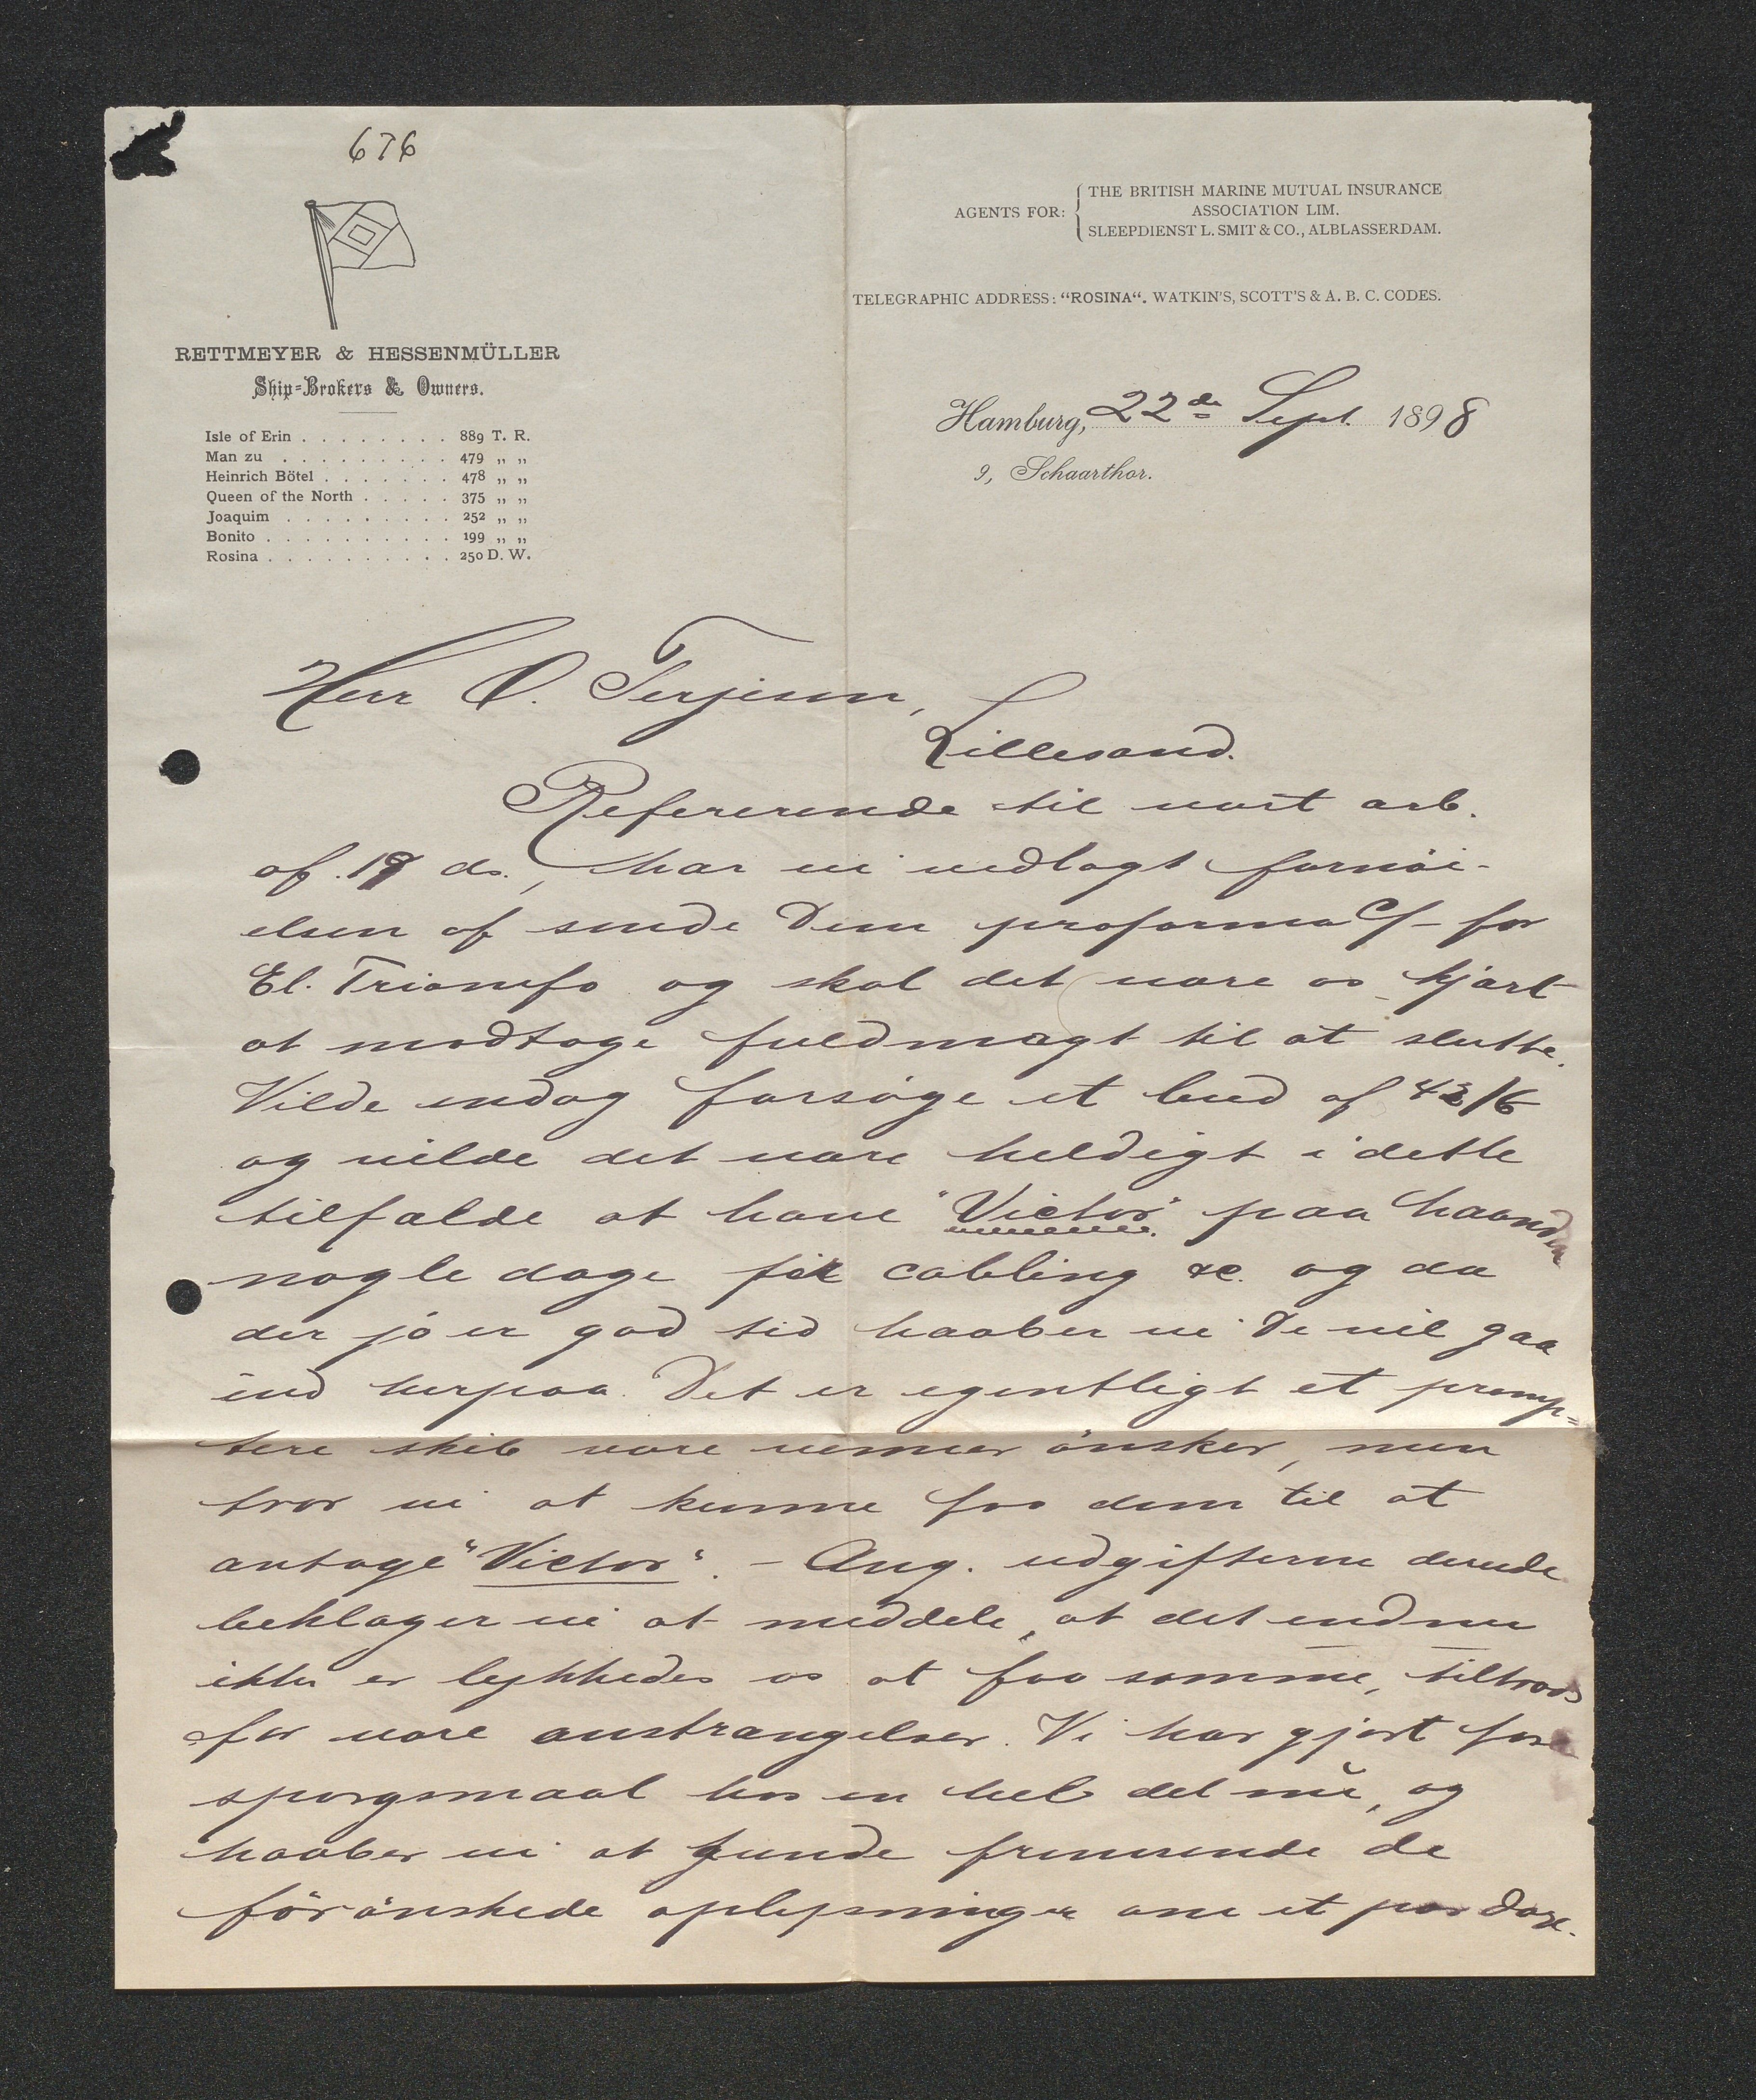 676
AGENTS FOR: THE BRITISH MARINE MUTUAL INSURANCE
ASSOCIATION LIM.
SLEEPDIENST L. SMIT & CO., ALBLASSERDAM.
TELEGRAPHIC ADDRESS: "ROSINA". WATKIN'S, SCOTT'S & A. B. C. CODES.
RETTMEYER & HESSENMÜLLER
Ship-Brokers & Owners.
Isle of Erin . . . . . . . . 889 T. R.
Man zu . . . . . . . . . 479 „ „
Heinrich Bötel . . . . . . . 478 „ „
Queen of the North . . . . . 375 „ „
Joaquim . . . . . . . . . 252 „ „
Bonito . . . . . . . . . . 199 „ „
Rosina . . . . . . . . . . 250 D. W.
Hamburg, 22de Sept. 1898
9, Schaarthor.
Herr O. Terjesen,
Lillesand.
Refererende til vort arb.
af. 19 ds., har vi vedlagt fornöi-
elsen af sende Dem proforma C/- for
El. Trionfo og skal det vare os kjart
at modtage fuldmagt til at slutte.
Vilde endog forsöge et bud af 42/6
og vilde det vare heldigt i dette
tilfalde at have "Victor" paa haanden
nogle dage för cabling &c. og da
der jo er god tid haaber vi De vil gaa
ind herpaa. Det er egentligt et promp=
tere skib vore venner önsker, men
tror vi at kunne faa dem til at
antage "Victor". - Ang. udgifterne derude
beklager vi at meddele, at det endnu
ikke er lykkedes os at faa samme, tiltrods
for vore anstrangelser. Vi har gjort fore
sporgsmaal hos en hel del nu, og
haaber vi at kunde fremsende de
förönskede oplysninger om et par dage.